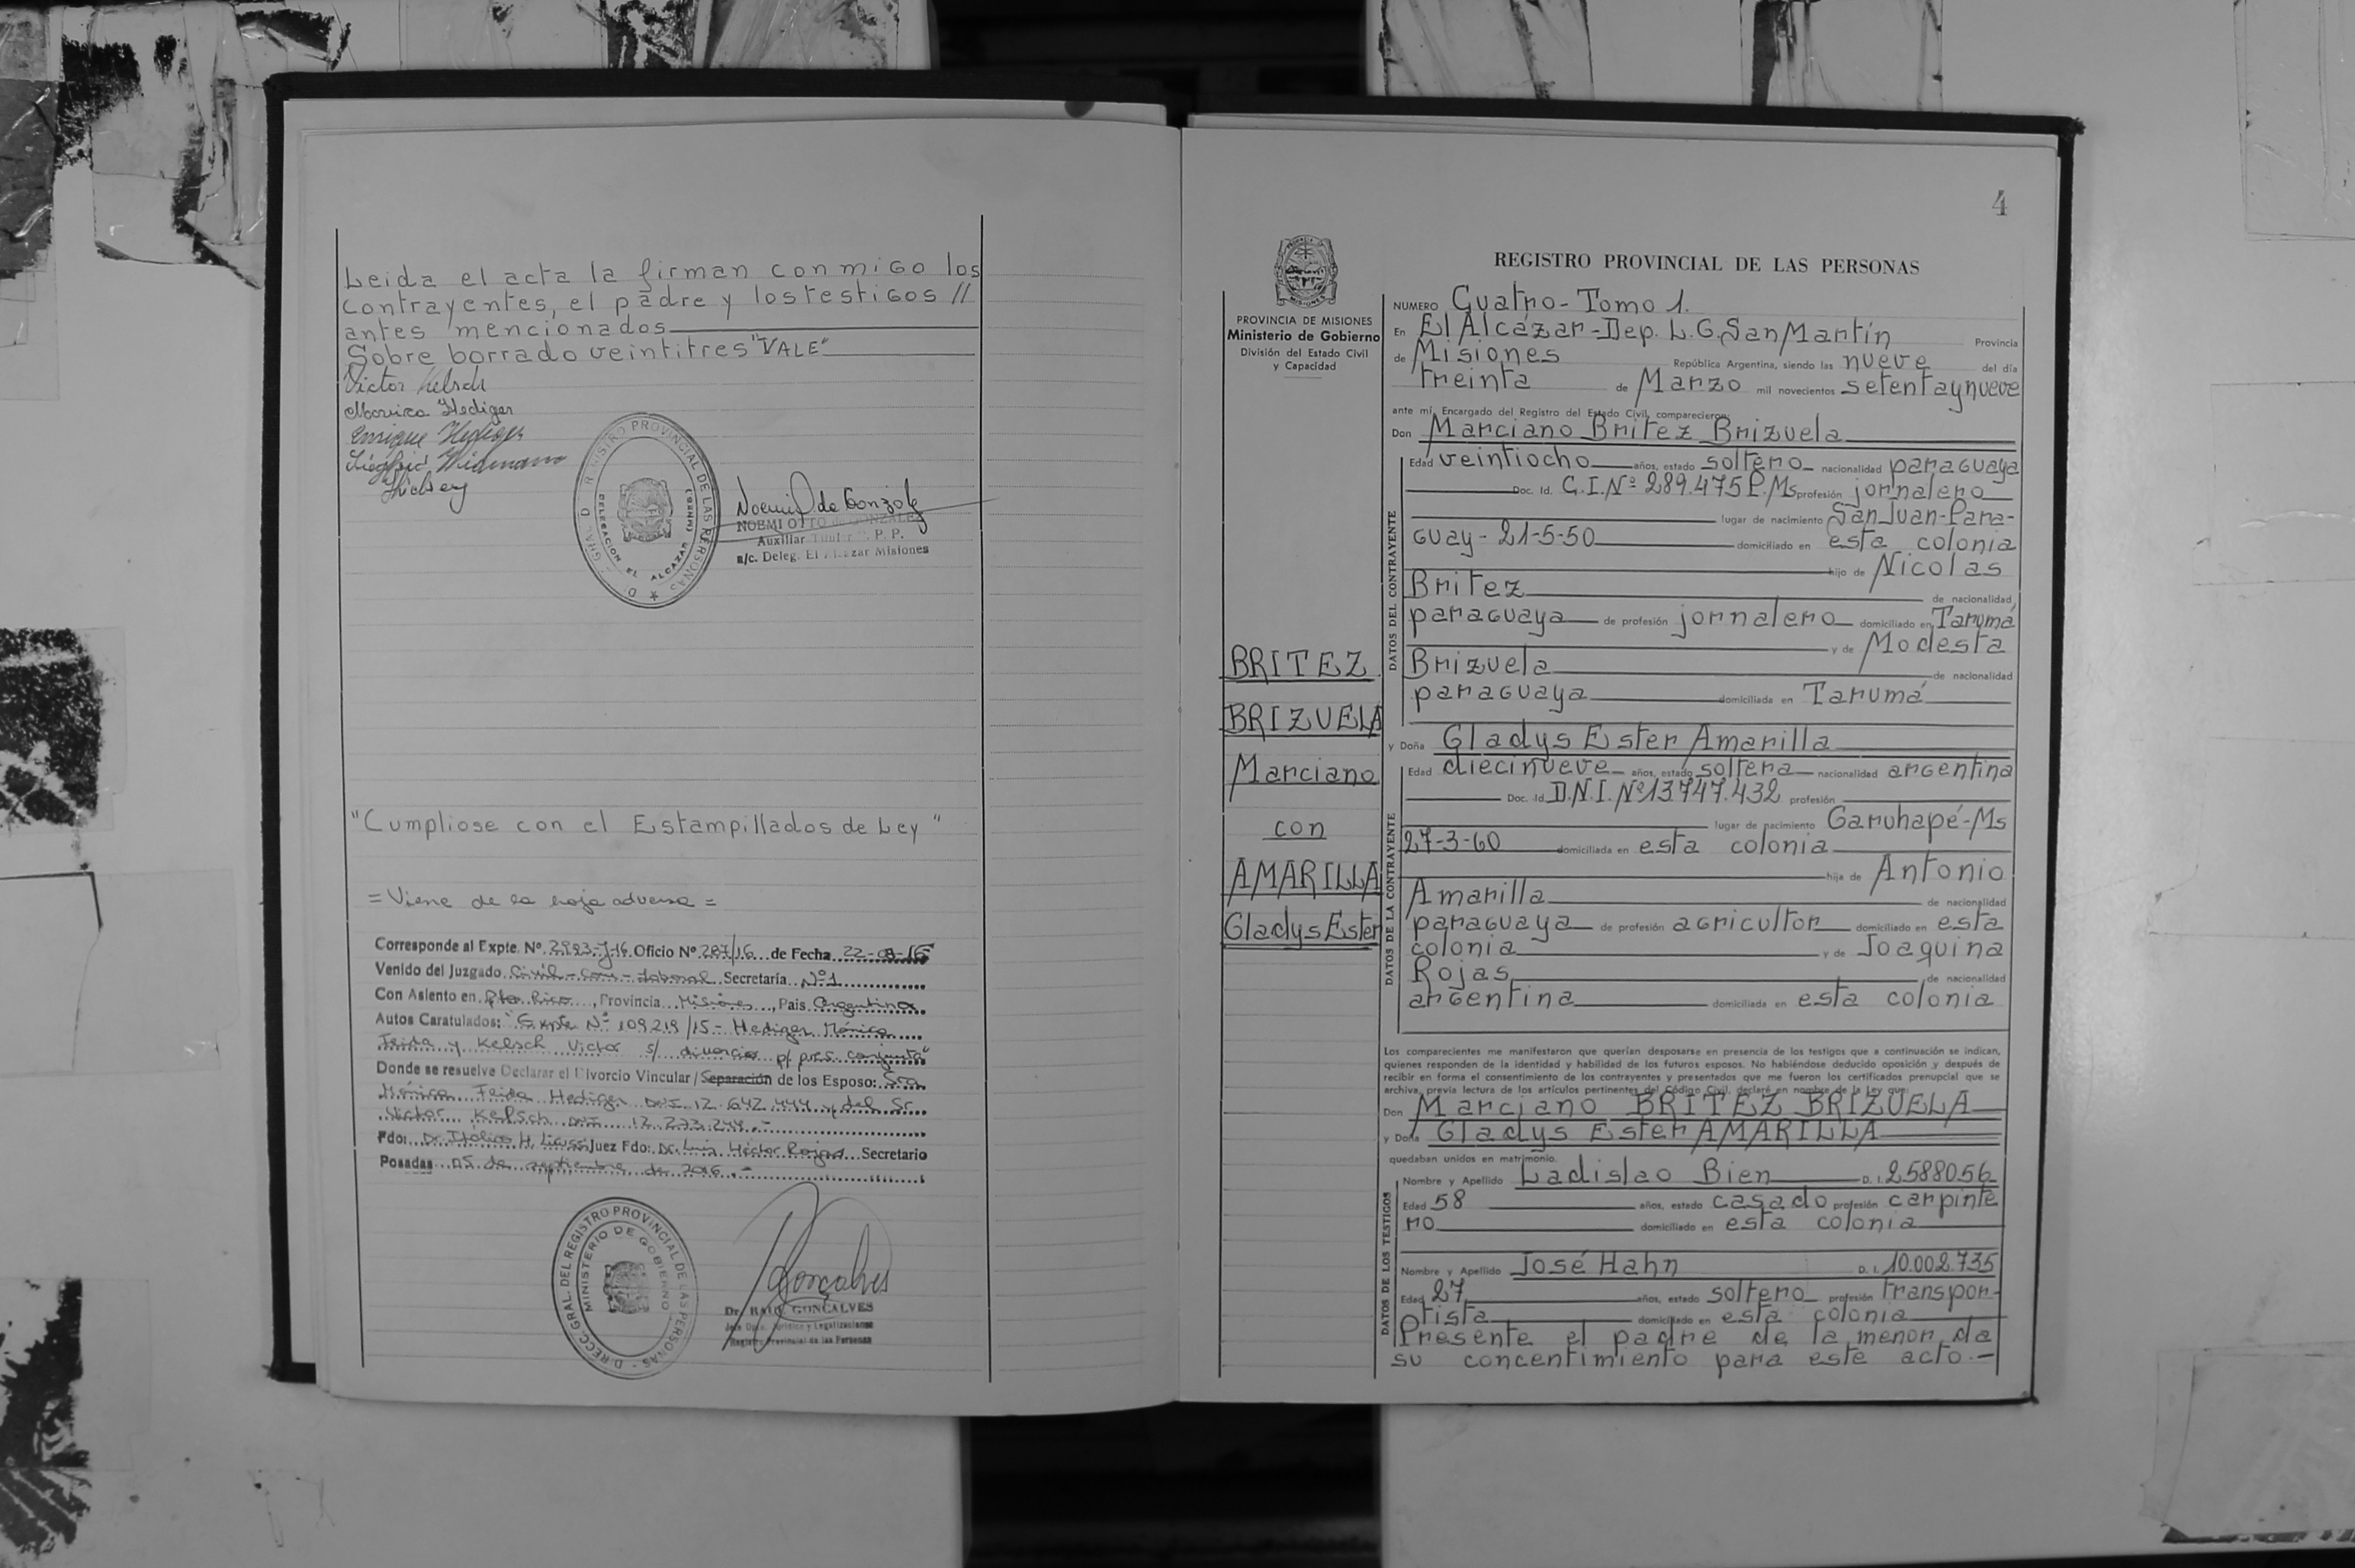 Leida el acta la firman conmigo los
contrayentes, el padre y los testigos //
antes mencionados
Sobre borrado veintitres "VALE"
Victor Kelsch
Monica Hediger
Enrique Hediger
REGISTRO PROVINCIAL DE LAS PERSONAS
DELEGACION EL ALCAZAR (MNES)
Noemi de Gonzalez
NOEMI OTTO de GONZALEZ
Auxiliar P. P.
a/c. Deleg. El Alcazar Misiones
"Cumpliose con el Estampillados de Ley"
= Viene de la hoja adversa =
Corresponde al Expte. Nº 2993-J-16 Oficio Nº 287/16 de Fecha 22-08-16
Venido del Juzgado Civil - Com - Laboral Secretaría Nº 1
Con Asiento en Pto Rico, Provincia Misiones, País Argentina
Autos Caratulados: "Expte Nº 109219/15 - Hediger Mónica
Frida y Kelsch Victor s/ divorcio p/ pres. conjunta"
Donde se resuelve Declarar el Divorcio Vincular / Separación de los Esposo: Sra
Mónica Frida Hediger DNI 12.642.444 y del Sr
Victor Kelsch DNI 12.273.244.-
Fdo: Dr Juez Fdo: Dr. Luis Héctor Rojas Secretario
Posadas 05 de septiembre de 2016.-
DIRECC. GRAL. DEL REGISTRO PROVINCIAL DE LAS PERSONAS
MINISTERIO DE GOBIERNO
Goncalves
Dr. RAUL GONCALVES
Jefe Dpto. Jurídico y Legalizaciones
Registro Provincial de las Personas
4
PROVINCIA DE MISIONES
Ministerio de Gobierno
División del Estado Civil
y Capacidad
BRITEZ
BRIZUELA
Marciano
con
AMARILLA
Gladys Ester
REGISTRO PROVINCIAL DE LAS PERSONAS
NUMERO Cuatro - Tomo 1.
En El Alcázar - Dep. L.G. San Martín Provincia
de Misiones República Argentina, siendo las nueve del día
treinta de Marzo mil novecientos setenta y nueve
ante mí, Encargado del Registro del Estado Civil, comparecieron:
Don Marciano Britez Brizuela
DATOS DEL CONTRAYENTE
Edad veintiocho años, estado soltero nacionalidad paraguaya
Doc. Id. C.I. Nº 289.475 P. Ms profesión jornalero
lugar de nacimiento San Juan - Para-
guay - 21-5-50 domiciliado en esta colonia
hijo de Nicolas
Britez de nacionalidad
paraguaya de profesión jornalero domiciliado en Tarumá
y de Modesta
Brizuela de nacionalidad
paraguaya domiciliada en Tarumá
y Doña Gladys Ester Amarilla
DATOS DE LA CONTRAYENTE
Edad diecinueve años, estado soltera nacionalidad argentina
Doc. Id. D.N.I. Nº 13.747.432 profesión
lugar de nacimiento Garuhapé - Ms
27-3-60 domiciliada en esta colonia
hija de Antonio
Amarilla de nacionalidad
paraguaya de profesión agricultor domiciliado en esta
colonia y de Joaquina
Rojas de nacionalidad
argentina domiciliada en esta colonia
Los comparecientes me manifestaron que querían desposarse en presencia de los testigos que a continuación se indican,
quienes responden de la identidad y habilidad de los futuros esposos. No habiéndose deducido oposición y después de
recibir en forma el consentimiento de los contrayentes y presentados que me fueron los certificados prenupcial que se
archiva, previa lectura de los artículos pertinentes del Código Civil, declaré en nombre de la Ley que
Don Marciano BRITEZ BRIZUELA
y Doña Gladys Ester AMARILLA
quedaban unidos en matrimonio.
DATOS DE LOS TESTIGOS
Nombre y Apellido Ladislao Bien D. I. 2588056
Edad 58 años, estado casado profesión carpinte
ro domiciliado en esta colonia
Nombre y Apellido José Hahn D. I. 10.002.735
Edad 27 años, estado soltero profesión transpor-
tista domiciliado en esta colonia
Presente el padre de la menor da
su concentimiento para este acto.-